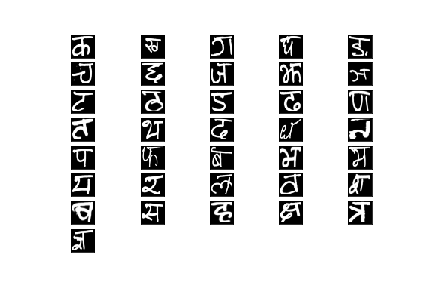 क ख ग घ ङ
च छ ज झ ञ
ट ठ ड ढ ण
त थ द ध न
प फ ब भ म
य र ल व श
ष स ह क्ष त्र
ज्ञ